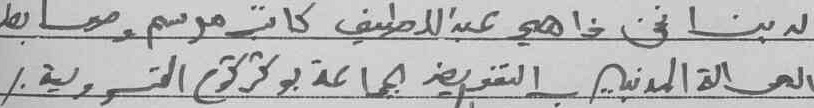 لدينا نحن فاهي عبد اللطيف كاتب مرسم وضابط
الحالة المدنية بالتفويض لجماعة بوكركوح القروية./